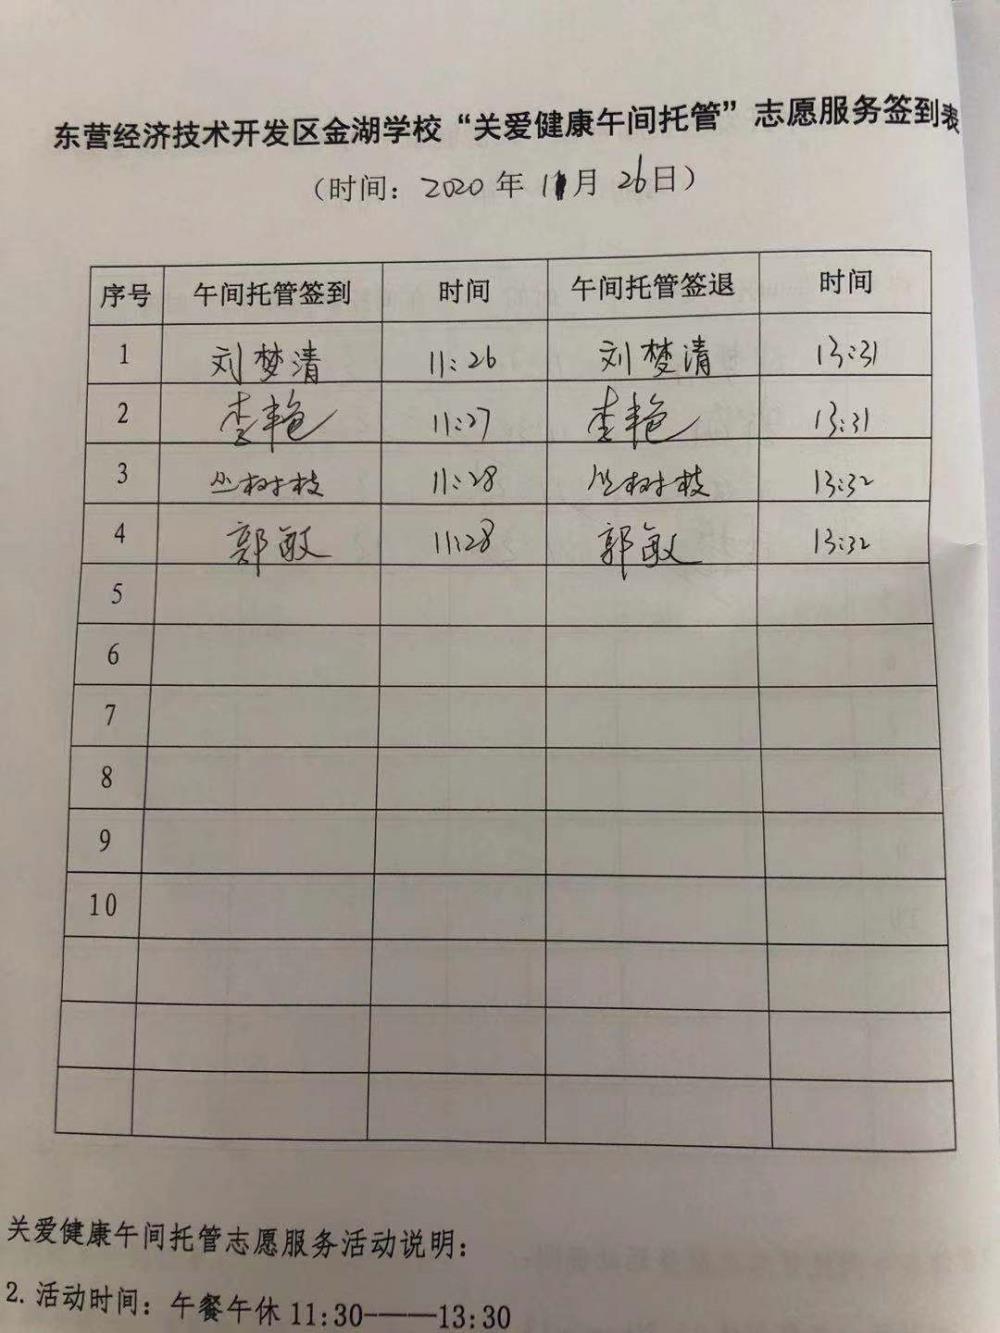 东营经济技术开发区金湖学校“关爱健康午间托管”志愿服务签到表
（时间：2020年 11月 26日）
序号 午间托管签到 时间 午间托管签退 时间
1 刘梦清 11:26 刘梦清 13:31
2 李艳 11:27 李艳 13:31
3 丛树枝 11:28 丛树枝 13:32
4 郭敏 11:28 郭敏 13:32
5
6
7
8
9
10
关爱健康午间托管志愿服务活动说明：
2. 活动时间：午餐午休 11:30———13:30